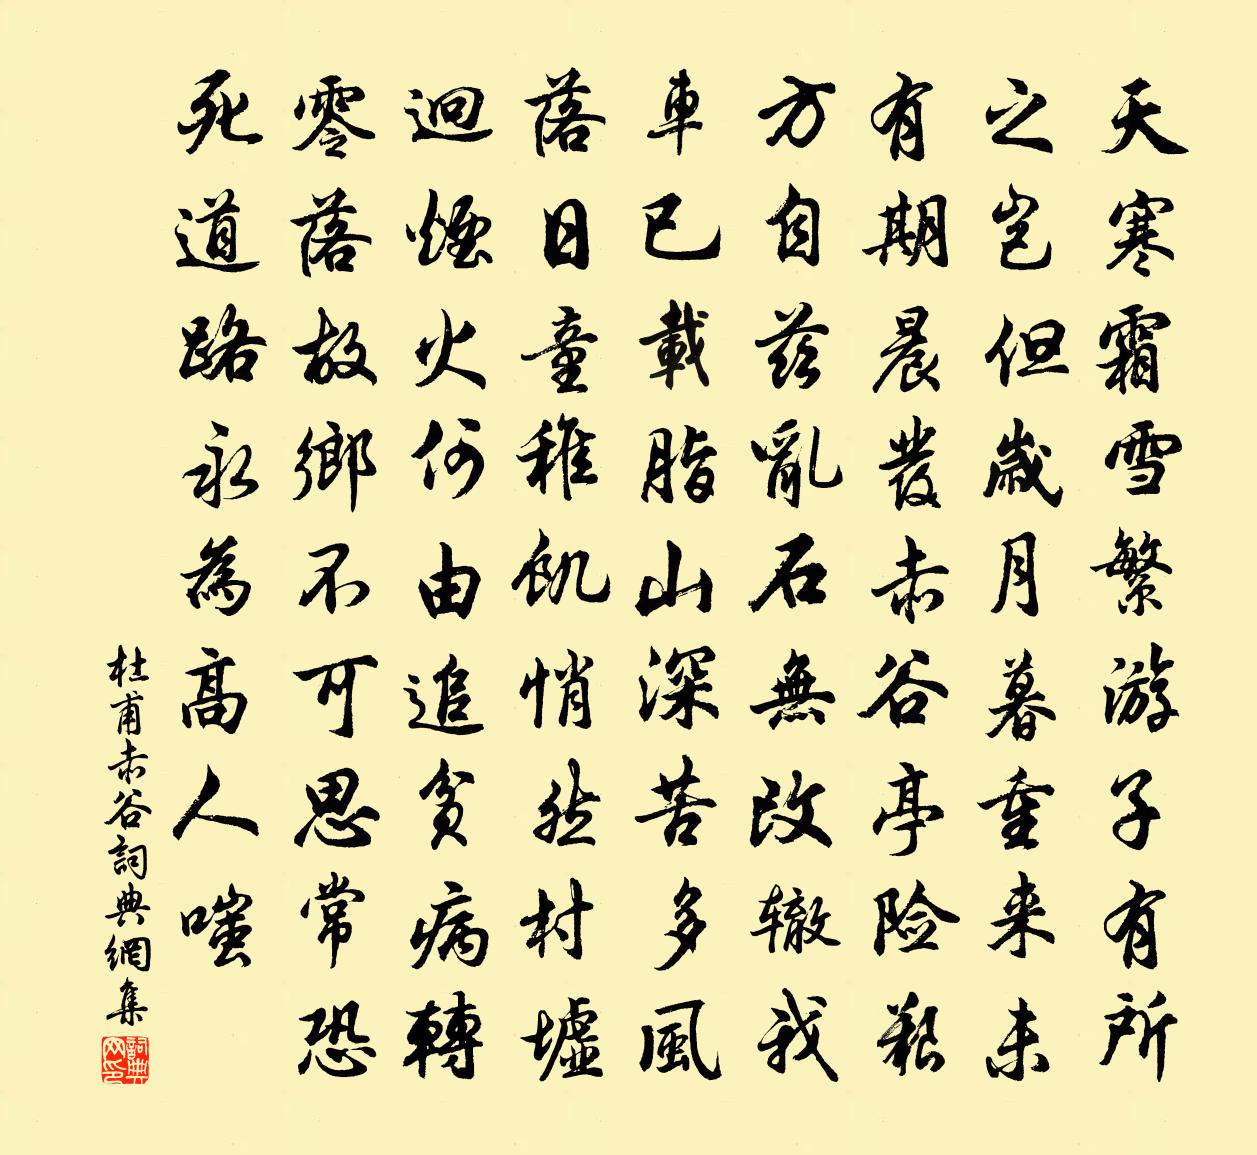 天寒霜雪繁游子有所
之岂但歲月暮重来未
有期晨發赤谷亭险艱
方自兹亂石無改辙我
車已載脂山深苦多風
落日童稚飢悄然村墟
迥煙火何由追貧病轉
零落故鄉不可思常恐
死道路永為高人嗤
杜甫赤谷詞典網集
詞典网印